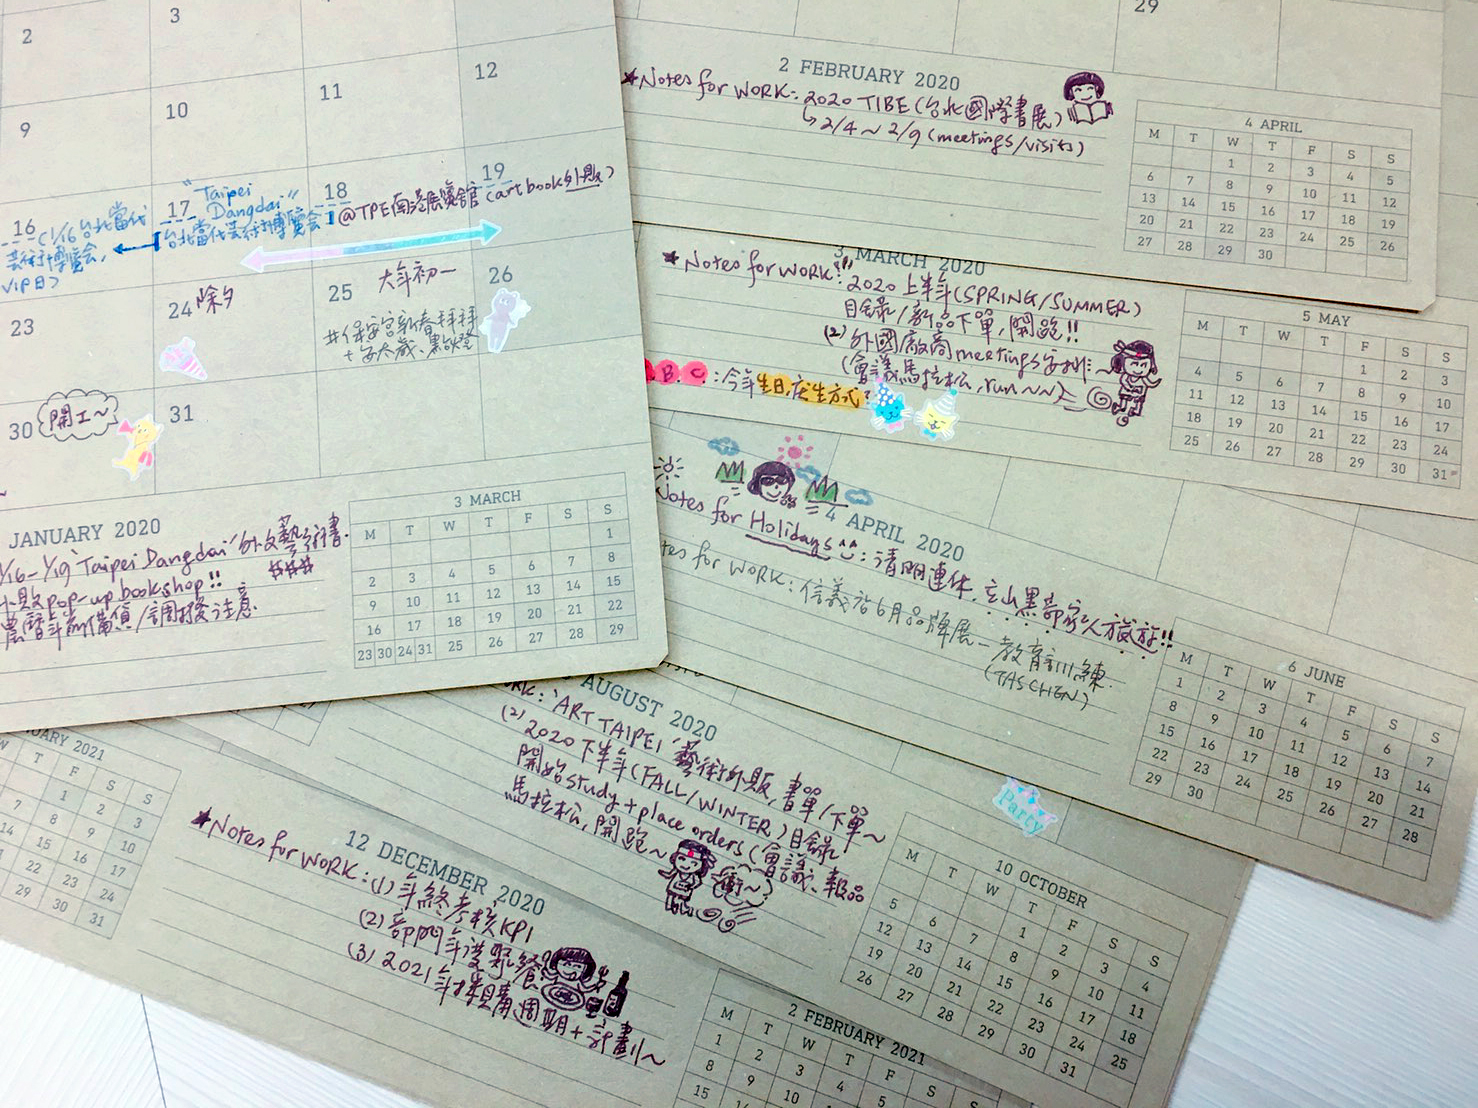 2
3
9
10
11
12
16 (1/16 台北當代
藝術博覽会,
VIP日)
17
"Taipei
Dangdai"
台北當代藝術博覽会
18
19
@TPE南港展覽館 (art book外販)
23
24 除夕
25 大年初一
#保安宮新春拜拜
+安太歲、點光燈
26
30 開工~
31
JANUARY 2020
1/16-1/19 "Taipei Dangdai" 外文藝術書
pop-up bookshop!!
農曆年前備貨/調撥注意
3 MARCH
M T W T F S S
1
2 3 4 5 6 7 8
9 10 11 12 13 14 15
16 17 18 19 20 21 22
23 30 24 31 25 26 27 28 29
29
2 FEBRUARY 2020
★Notes for WORK: 2020 TIBE (台北國際書展)
↳ 2/4 ~ 2/9 (meetings/visits)
4 APRIL
M T W T F S S
1 2 3 4 5
6 7 8 9 10 11 12
13 14 15 16 17 18 19
20 21 22 23 24 25 26
27 28 29 30
3 MARCH 2020
★Notes for WORK: 2020 上半年(SPRING/SUMMER)
目錄/新品下單,開跑!!
(2) 外國廠商meetings安排~
(會議馬拉松, run~~)
B. C.: 今年生日,慶生方式?
5 MAY
M T W T F S S
1 2 3
4 5 6 7 8 9 10
11 12 13 14 15 16 17
18 19 20 21 22 23 24
25 26 27 28 29 30 31
4 APRIL 2020
Notes for Holidays: 清明連休, 立山黑部家人旅遊!!
Notes for WORK: 信義店6月品牌展-教育訓練
(TASCHEN)
6 JUNE
M T W T F S S
1 2 3 4 5 6 7
8 9 10 11 12 13 14
15 16 17 18 19 20 21
22 23 24 25 26 27 28
29 30
AUGUST 2020
WORK: "ART TAIPEI" 藝術外販,書單/下單~
(2) 2020 下半年(FALL/WINTER)目錄
開始study+place orders (會議、報品
馬拉松,開跑~
衝~
Party
10 OCTOBER
M T W T F S S
1 2 3 4
5 6 7 8 9 10 11
12 13 14 15 16 17 18
19 20 21 22 23 24 25
26 27 28 29 30 31
12 DECEMBER 2020
★Notes for WORK: (1) 年終考核KPI
(2) 部門年度聚餐
(3) 2021年採購週期+計劃~
2021
W T F S S
1 2 3
7 8 9 10
14 15 16 17
22 23 24
29 30 31
2 FEBRUARY 2021
M T W T F S S
1 2 3 4 5
8 9 10
15